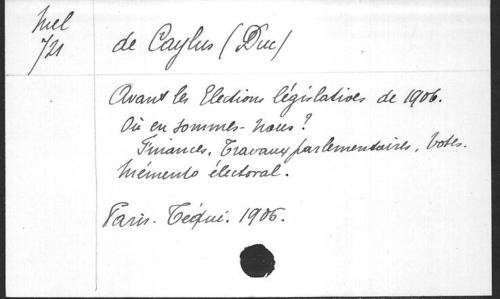 Mel
721
de Caylus (Duc)
Avant les Elections législatives de 1906.
Où en sommes-nous?
Finances, Travaux parlementaires, Votes.
Mémento électoral.
Paris. Téqui. 1906.